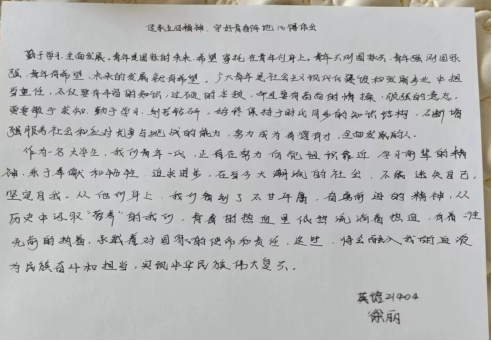 勤于学习 全面发展。青年是国家的未来，希望寄托在青年们身上。青年兴则国家兴，青年强则国家
强，青年有希望，未来的发展就有希望。广大青年是社会主义现代化建设和发展事业中担
当重任，不仅要有丰富的知识，过硬的本领，而且要有高尚的情操，顽强的意志，
要勇敢于求知，勤于学习，刻苦钻研，始终保持与时代同步的知识结构，不断增
强服务社会和应对竞争与挑战的能力，努力成为有德有才，全面发展的人。
作为一名大学生，我们青年一代，还有在努力向先祖
神，乐于奉献和牺牲，追求进步，在当今大潮流的社会，不能迷失自己，
坚定自我。从他们身上，我们看到了不甘平庸，奋勇前进的精神，从
历史中汲取"营养"的我们，青春的热血里依然流淌着热血，有着一往
无前的热爱，承载着对国家的使命和责任，这些，将会融入我的血液
为民族奋斗和担当，实现中华民族伟大复兴。
英语21404
徐丽